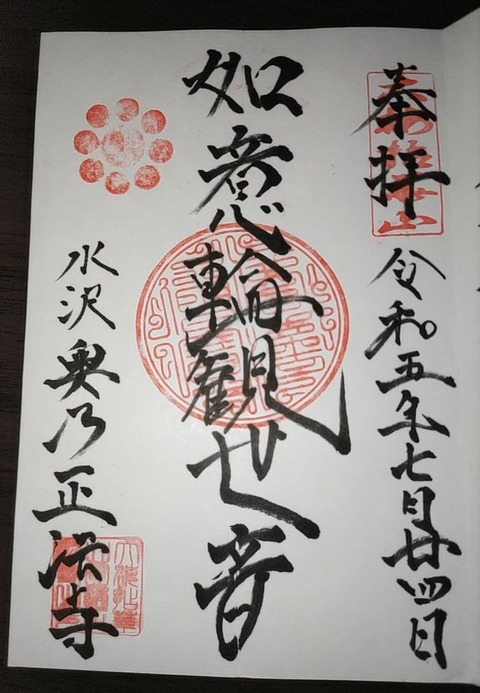 奉拝
令和五年七月廿四日
如意輪観世音
水沢奥乃正法寺